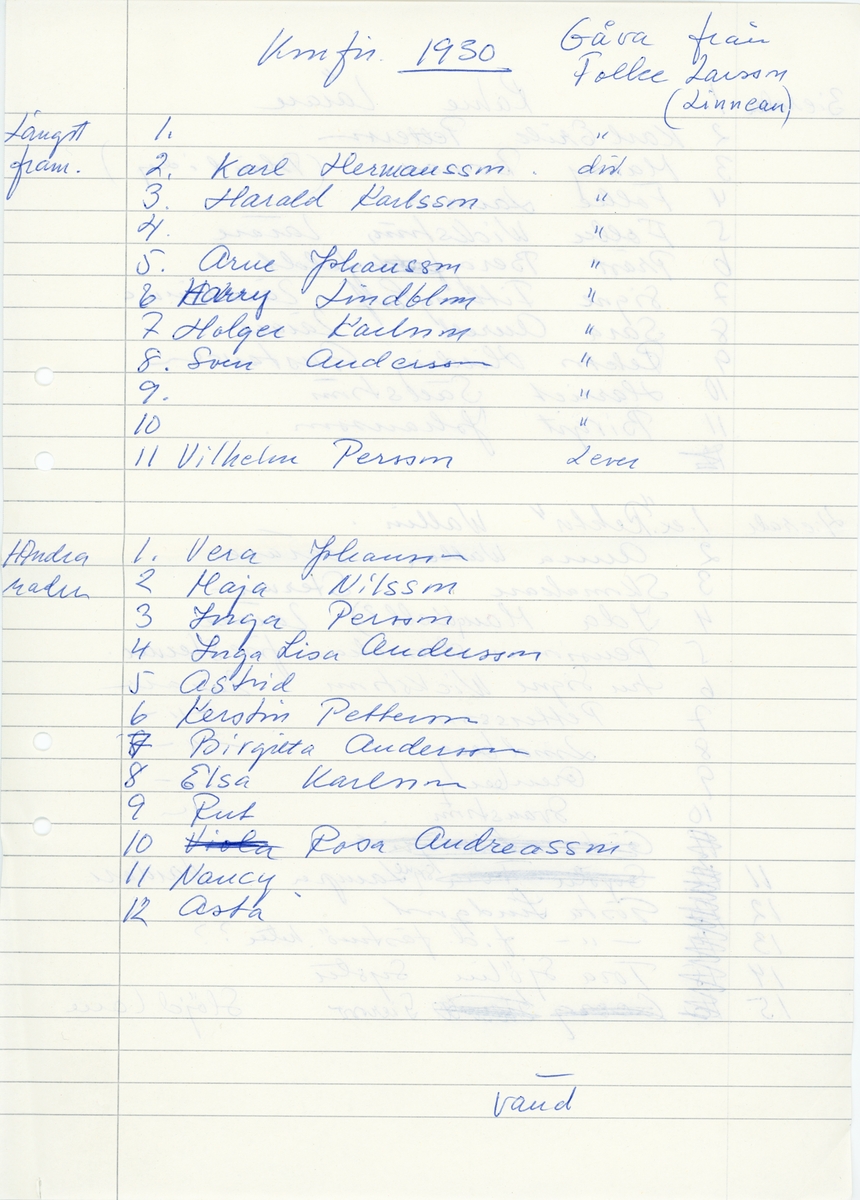 Konfir. 1930
Gåva från
Folke Larson
(Linnean)
Längst
fram.
1. "
2. Karl Hermansson. död.
3. Harald Karlsson "
4. "
5. Arne Johansson "
6 Harry Lindblom "
7 Holger Karlsson "
8. Sven Anderson "
9. "
10 "
11 Vilhelm Persson Lever
Andra
raden
1. Vera Johansson
2 Maja Nilsson
3 Inga Persson
4 Inga Lisa Andersson
5 Astrid
6 Kerstin Petterson
7 Birgitta Anderson
8 Elsa Karlsson
9 Rut
10 Viola Rosa Andreasson
11 Nancy
12 Asta
vänd